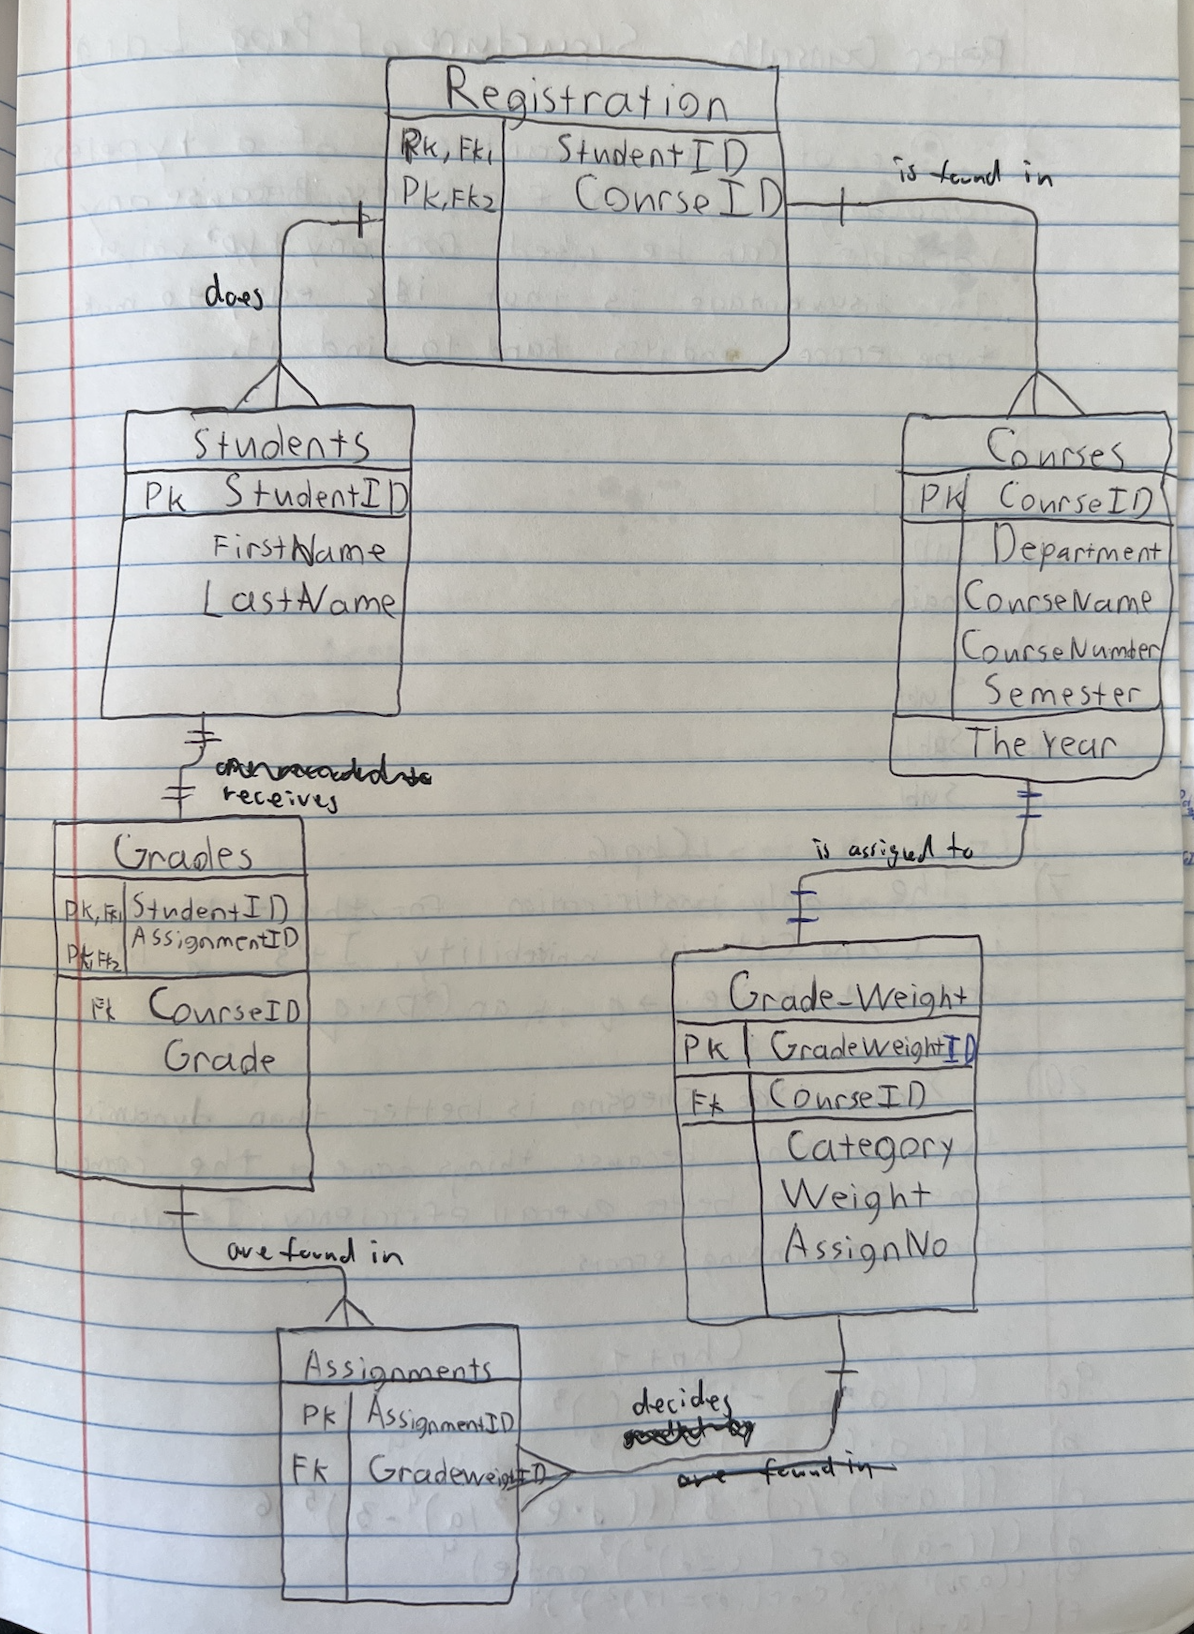 Registration
PK, FK1 StudentID
PK, FK2 CourseID
is found in
does
Students
PK StudentID
FirstName
LastName
Courses
PK CourseID
Department
CourseName
CourseNumber
Semester
The Year
receives
is assigned to
Grades
PK, FK1 StudentID
PK, FK2 AssignmentID
FK CourseID
Grade
Grade-Weight
PK GradeWeightID
FK CourseID
Category
Weight
AssignNo
are found in
Assignments
PK AssignmentID
FK GradeweightID
decides
are found in